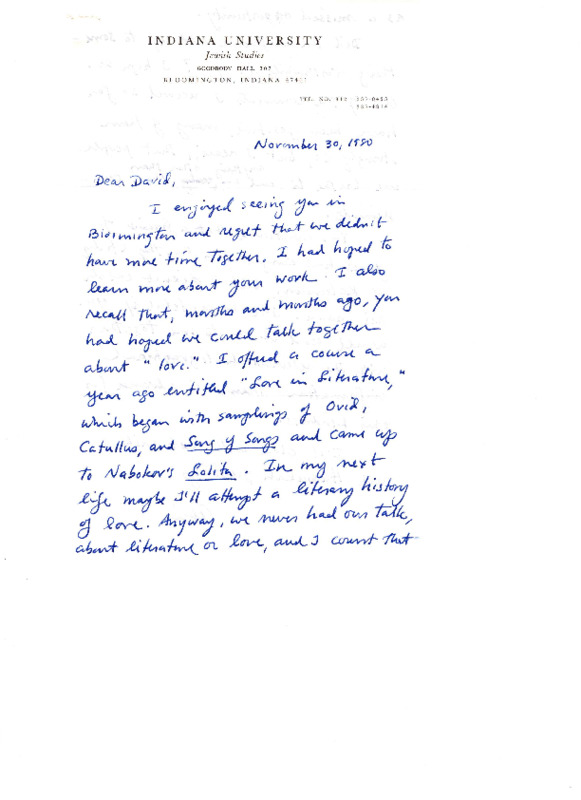 INDIANA UNIVERSITY
Jewish Studies
GOODBODY HALL 202
BLOOMINGTON, INDIANA 47401
TEL. NO. 812
November 30, 1980
Dear David,
I enjoyed seeing you in
Bloomington and regret that we didn't
have more time together. I had hoped to
learn more about your work. I also
recall that, months and months ago, you
had hoped we could talk together
about "love." I offered a course a
year ago entitled "Love in Literature,"
which began with samplings of Ovid,
Catullus, and Song of Songs and came up
to Nabokov's Lolita. In my next
life maybe I'll attempt a literary history
of love. Anyway, we never had our talk,
about literature or love, and I count that